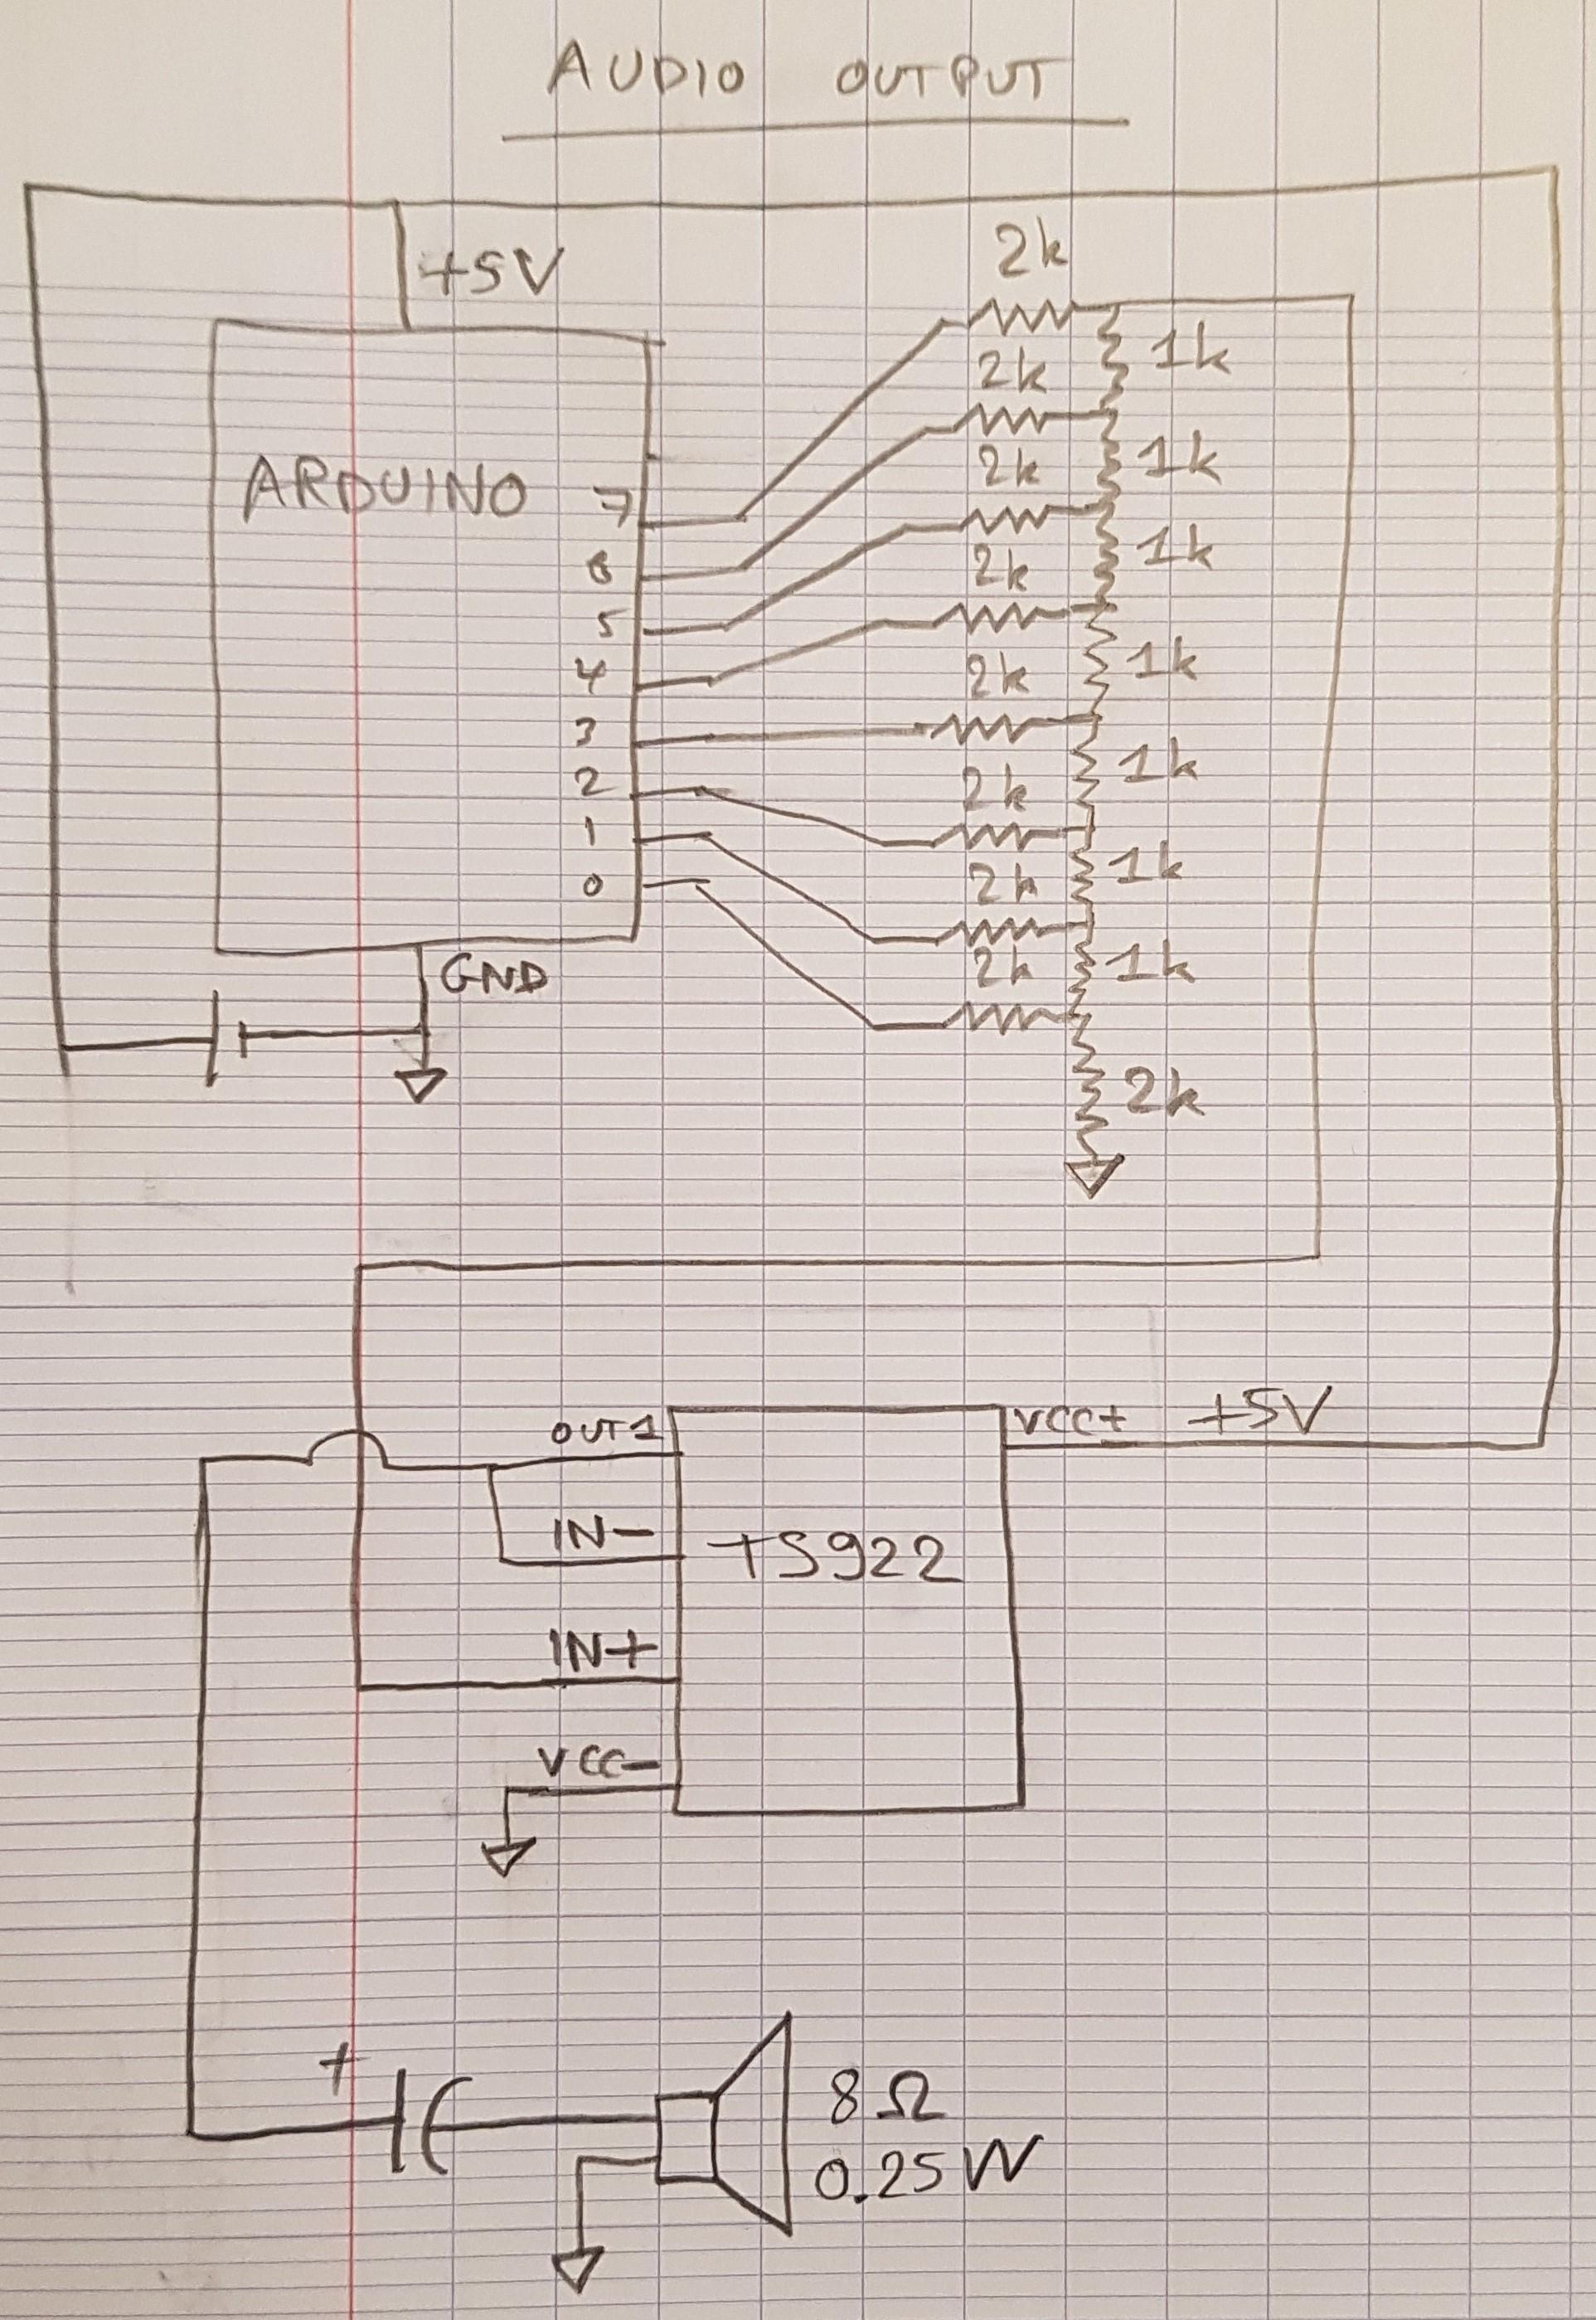 AUDIO OUTPUT
+5V
ARDUINO
7
6
5
4
3
2
1
0
GND
2k
1k
2k
1k
2k
1k
2k
1k
2k
1k
2k
1k
2k
1k
2k
2k
OUT1
IN-
IN+
VCC-
TS922
VCC+ +5V
+
8Ω
0.25W